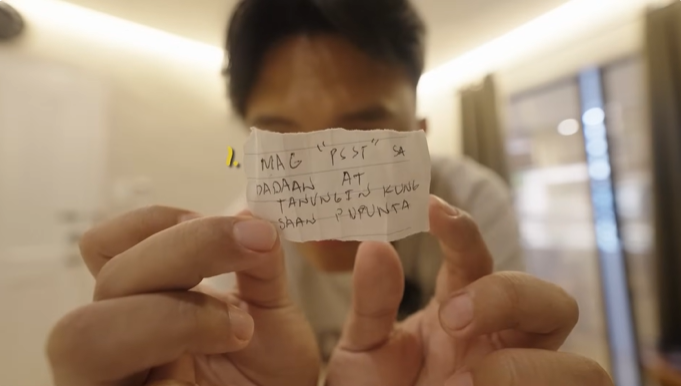 1.
MAG "PSST" SA
DADAAN AT
TANUNGIN KUNG
SAAN PUPUNTA